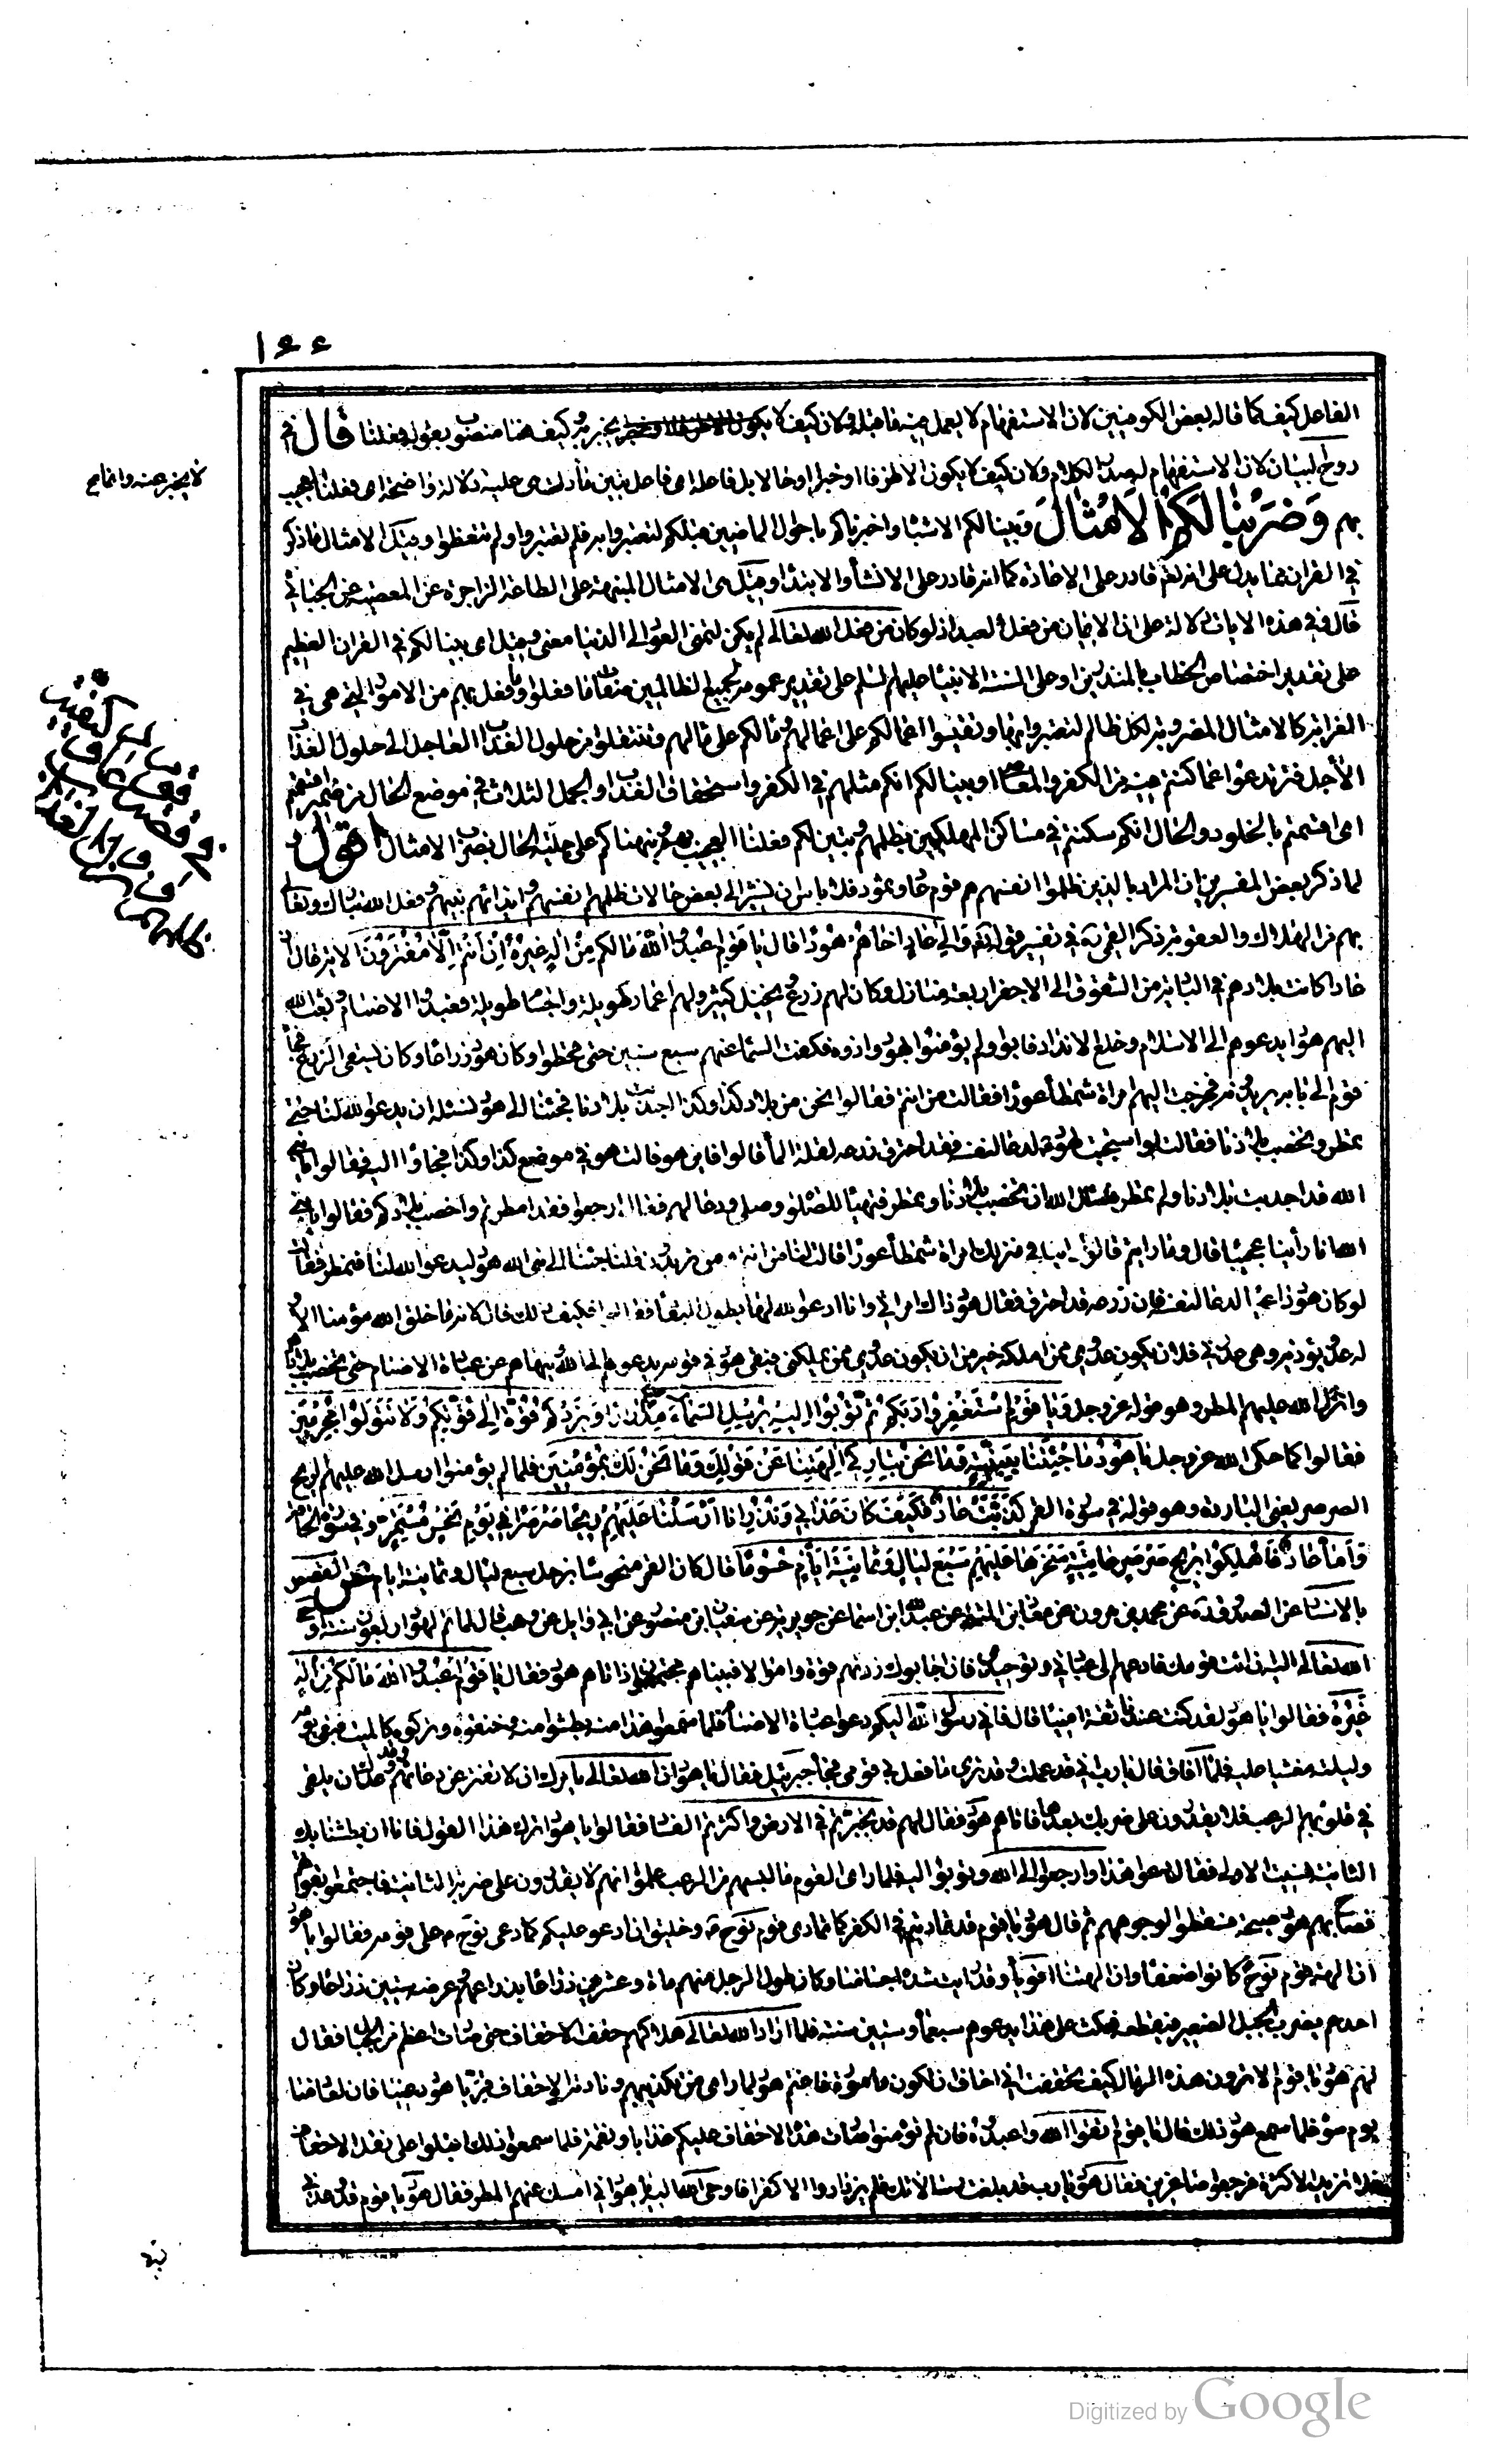 ١٤٤
الفاعل كيف كما قاله بعض الكوفيين لان الاستفهام لا يعمل فيه ما قبله ولان كيف لا يخبر كيف هنا منصوب بقوله فعلنا قال في
لا يخبر عنه وانما
روح البيان لان الاستفهام له صدر الكلام ولان كيف لا يكون الا ظرفا او خبرا او حالا بل فاعله اى فاعل تبين ما دلت عليه دلالة واضحة اى فعلنا العجيب
بهم وَضَرَبْنا لَكُمُ الْأَمْثالَ وبينا لكم الاشباه واخبرناكم باحوال الماضين قبلكم لتعتبروا بهم فلم تعتبروا ولم تتعظوا وقيل الامثال ما ذكر
في القران مما يدل على انه تعالى قادر على الاعادة كما انه قادر على الانشاء والابتداء وقيل هى الامثال المنبهة على الطاعة الزاجرة عن المعصية عن الجبائي
قال وفي هذه الايات دلالة على ان الايمان من فعل العبد اذ لو كان من فعل الله تعالى لم يكن لتمنى العود الى الدنيا معنى وقيل اى بينا لكم في القران العظيم
على تقدير اختصاص الخطاب بالمنذرين او على السنة الانبياء عليهم السلم على تقدير عمومه لجميع الظالمين صفات ما فعلوا وما فعل بهم من الامور التي هى في
الغرابة كالامثال المضروبة لكل ظالم لتعتبروا بها وتقيسوا اعمالكم على اعمالهم ومالكم على مالهم وتنتقلوا من حلول العذاب العاجل الى حلول العذاب
الآجل فترتدعوا عما كنتم فيه من الكفر والمعاصي او بينا لكم انكم مثلهم في الكفر واستحقاق العذاب والجمل الثلاث في موضع الحال من ضمير اقسمتم
اى اقسمتم بالخلود والحال انكم سكنتم في مساكن المهلكين بظلمهم وتبين لكم فعلنا العجيب بهم ونبهناكم على جلية الحال بضرب الامثال اقول
لما ذكر بعض المفسرين ان المراد بالذين ظلموا انفسهم هم قوم عاد وثمود فلا باس ان نشير الى بعض حالات ظلمهم انفسهم وايذائهم نبيهم وفعل الله تبارك وتعالى
بهم من الهلاك والعقوبة ذكر القمي في تفسير قوله تعالى والى عاد اخاهم هودا قال يا قوم اعبدوا الله مالكم من اله غيره ان انتم الا مفترون الاية قال ان
عادا كانت بلادهم في البادية من الشقوق الى الاجفر اربعة منازل وكان لهم زرع ونخيل كثير ولهم اعمار طويلة واجسام طويلة فعبدوا الاصنام وبعث الله
اليهم هودا يدعوهم الى الاسلام وخلع الانداد فابوا ولم يؤمنوا بهود واذوه فكفت السماء عنهم سبع سنين حتى قحطوا وكان هود زراعا وكان يسقى الزرع فجاء
قوم الى بابه يريدونه فخرجت اليهم امراة شمطاء عوراء فقالت من انتم فقالوا نحن من بلاد كذا وكذا اجدبت بلادنا فجئنا الى هود نسئله ان يدعو الله لنا حتى
تمطر وتخصب بلادنا فقالت لو استجيب لهود لدعا لنفسه فقد احترق زرعه لقلة الماء قالوا فاين هو قالت هو في موضع كذا وكذا فجاؤا اليه فقالوا يا نبي
الله قد اجدبت بلادنا ولم تمطر فاسئل الله ان تخصب بلادنا وتمطر فتهيأ للصلوة وصلى ودعا لهم فقال ارجعوا فقد امطرتم واخصبت بلادكم فقالوا يا نبي
الله انا رأينا عجبا قال وما رايتم قالوا رأينا في منزلك امراة شمطاء عوراء قالت لنا من انتم ومن تريدون قلنا جئنا الى نبي الله هود ليدعو الله لنا فنمطر فقالت
لو كان هود داعيا لدعا لنفسه فان زرعه قد احترق فقال هود ذاك امراتي وانا ادعو الله لها بطول البقاء فقالوا فكيف ذلك قال لانه ما خلق الله مؤمنا الا و
له عدو يؤذيه وهى عدوتي فلان يكون عدوي ممن املكه خير من ان يكون عدوي ممن يملكني فبقى هود في قومه يدعوهم الى الله وينهاهم عن عبادة الاصنام حتى تخصب بلادهم
وانزل الله عليهم المطر وهو قوله عز وجل وَيا قَوْمِ اسْتَغْفِرُوا رَبَّكُمْ ثُمَّ تُوبُوا إِلَيْهِ يُرْسِلِ السَّماءَ عَلَيْكُمْ مِدْراراً وَيَزِدْكُمْ قُوَّةً إِلى قُوَّتِكُمْ وَلا تَتَوَلَّوْا مُجْرِمِينَ
فقالوا كما حكى الله عز وجل يا هُودُ ما جِئْتَنا بِبَيِّنَةٍ وَما نَحْنُ بِتارِكِي آلِهَتِنا عَنْ قَوْلِكَ وَما نَحْنُ لَكَ بِمُؤْمِنِينَ فلما لم يؤمنوا ارسل الله عليهم الريح
الصرصر يعنى الباردة وهو قوله في سورة القمر كَذَّبَتْ عادٌ فَكَيْفَ كانَ عَذابِي وَنُذُرِ إِنَّا أَرْسَلْنا عَلَيْهِمْ رِيحاً صَرْصَراً فِي يَوْمِ نَحْسٍ مُسْتَمِرٍّ وفي سورة الحاقة
وَأَمَّا عادٌ فَأُهْلِكُوا بِرِيحٍ صَرْصَرٍ عاتِيَةٍ سَخَّرَها عَلَيْهِمْ سَبْعَ لَيالٍ وَثَمانِيَةَ أَيَّامٍ حُسُوماً قال كان القمر منحوسا بزحل سبع ليال وثمانية ايام القصص
بالاسناد عن الصدوق عن محمد بن هرون عن معاذ بن المثنى عن عبد الله ابن اسماء عن جويرية عن سفيان ابن منصور عن ابي وايل عن وهب قال لما تم لهود اربعون سنة اوحى
الله تعالى اليه ان ائت قومك فادعهم الى عبادتي وتوحيدي فان اجابوك زدتهم قوة واموالا فبيناهم مجتمعون اذ اتاهم هود فقال يا قوم اعبدوا الله مالكم من اله
غيره فقالوا يا هود لقد كنت عندنا ثقة امينا قال فاني رسول الله اليكم دعوا عبادة الاصنام فلما سمعوا هذا منه بطشوا منه وخنقوه وتركوه كالميت فبقى يومه
وليلته مغشيا عليه فلما افاق قال يا رب اني قد عملت وقد ترى ما فعل بي قومي فجاء جبرئيل فقال يا هود ان الله تعالى يامرك ان لا تفتر عن دعائهم وقد وعدك ان يلقى
في قلوبهم الرعب فلا يقدرون على ضربك بعدها فاتاهم هود فقال لهم قد تجبرتم في الارض واكثرتم الفساد فقالوا يا هود اترك هذا القول فانا ان بطشنا بك
الثانية نسيت الاولى فقال دعوا هذا وارجعوا الى الله وتوبوا اليه فلما راى القوم ما لبسهم من الرعب علموا انهم لا يقدرون على ضربه الثانية فاجتمعوا بقوتهم
فصاح بهم هود صيحة فسقطوا لوجوههم ثم قال هود يا قوم قد تماديتم في الكفر كما تمادى قوم نوح وخليق ان ادعو عليكم كما دعى نوح على قومه فقالوا يا هود
ان الهة قوم نوح كانوا ضعفاء وان الهتنا اقوياء وقد رايت شدة اجسامنا وكان طول الرجل منهم ماة وعشرين ذراعا بذراعهم وعرضه ستين ذراعا وكان
احدهم يضرب الجبل الصغير فيقطعه فمكث على هذا يدعوهم سبعمأة وستين سنة فلما اراد الله تعالى هلاكهم حقف الاحقاف حتى صارت اعظم من الجبال فقال
لهم هود يا قوم الا ترون هذه الرمال كيف تحقفت اني اخاف ان تكون مامورة فاغتم هود لما راى من تكذيبهم ونادته الاحقاف قر يا هود عينا فان لعاد منا
يوم سوء فلما سمع هود ذلك قال يا قوم اتقوا الله واعبدوه فان لم تؤمنوا صارت هذه الاحقاف عليكم عذابا ونقمة فلما سمعوا ذلك اقبلوا على نقل الاحقاف
فلا تزيد الا كثرة فرجعوا صاغرين فقال هود يا رب قد بلغت رسالاتك فلم يزدادوا الا كفرا فاوحى الله اليه يا هود اني امسك عنهم المطر فقال هود يا قوم قد وعدني